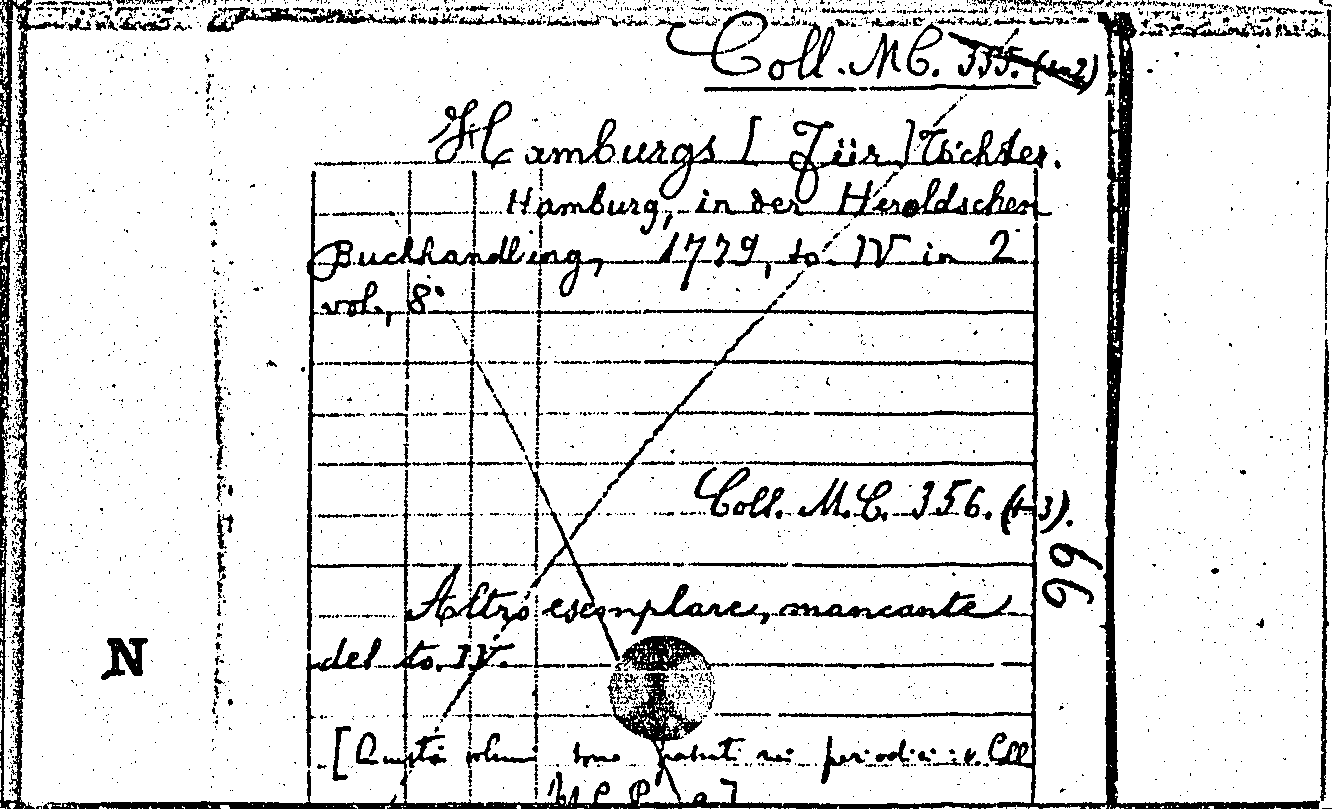 Coll. M C. 355. (1-2)
Hamburgs [Für] Töchter.
Hamburg, in der Heroldschen
Buchhandling, 1779, to. IV in 2
vol., 8°
Coll. M. C. 356. (1-3).
99
Altro esemplare, mancante
del to. IV.
N
[Questi volumi sono passati nei periodici: v. Coll